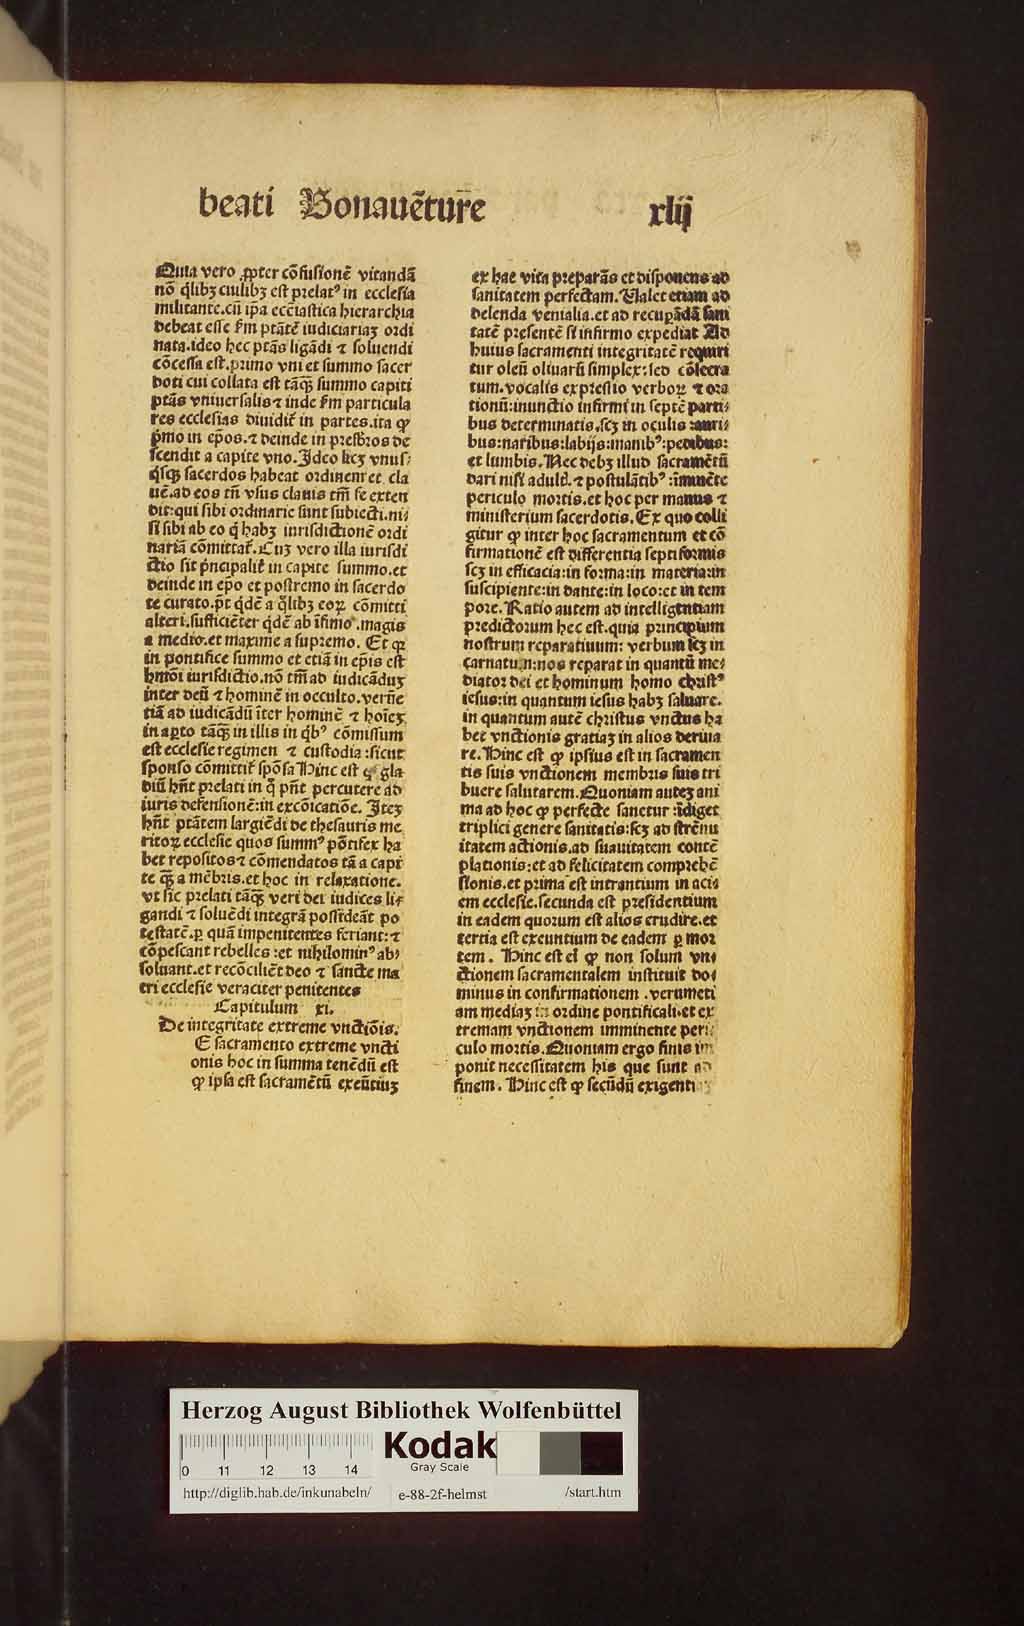 beati Bonauẽture xlij
Quia vero ꝓpter cõfusionẽ vitandã
nõ q̃libꝫ cuilibꝫ est prelatꝰ in ecclesia
militante. cũ ipa ecc̃iastica hierarchia
debeat esse s̃m ptãtẽ iudiciariaꝫ ordi
nata. ideo hec ptãs ligãdi ⁊ soluendi
cõcessa est. primo vni et summo sacer
doti cui collata est tãqꝫ̃ summo capiti
ptãs vniuersalis ⁊ inde s̃m particula
res ecclesias diuidit̃ in partes. ita ꝙ
p̃mo in ep̃os. ⁊ deinde in presb̃ros de
scendit a capite vno. Ideo licꝫ vnus⸗
q̃sqꝫ sacerdos habeat ordinem et cla
uẽ. ad eos tñ vsus clauis tm̃ se exten
dit: qui sibi ordinarie sunt subiecti. ni⸗
si sibi ab eo q̃ habꝫ iurisdictionẽ ordi
nariã cõmittat̃. Cuꝫ vero illa iurisdi
ctio sit p̃ncipalit̃ in capite summo. et
deinde in ep̃o et postremo in sacerdo
te curato. p̃t q̃dẽ a q̃libꝫ eoꝝ cõmitti
alteri. sufficiẽter q̃dẽ ab ĩfimo. magis
a medio. et maxime a supremo. Et qꝛ
in pontifice summo et etiã in ep̃is est
hmõi iurisdictio. nõ tm̃ ad iudicãduꝫ
inter deũ ⁊ hominẽ in occulto. verũe
tiã ad iudicãdũ ĩter hominẽ ⁊ hoĩeꝫ
in aꝑto tãqꝫ̃ in illis in q̃bꝰ cõmissum
est ecclesie regimen ⁊ custodia: sicut
sponso cõmittit̃ spõsa Hinc est ꝙ gla
diũ hñt prelati in q̃ pñt percutere ad
iuris defensionẽ: in excõicatiõe. Iteꝫ
hñt ptãtem largiẽdi de thesauris me
ritoꝝ ecclesie quos summꝰ põtifex ha
bet repositos ⁊ cõmendatos tã a capi
te qꝫ̃ a mẽbris. et hoc in relaxatione.
vt sic prelati tãqꝫ̃ veri dei iudices li⸗
gandi ⁊ soluẽdi integrã possideãt po
testatẽ. ꝑ quã impenitentes feriant: ⁊
cõpescant rebelles: et nihilominꝰ ab⸗
soluant. et recõciliẽt deo ⁊ sancte ma
tri ecclesie veraciter penitentes
Capitulum xi.
De integritate extreme vnctiõis.
E sacramento extreme vncti
onis hoc in summa tenẽdũ est
ꝙ ipsa est sacramẽtũ exeũtiuꝫ
ex hac vita preparãs et disponens ad
sanitatem perfectam. Valet etiam ad
delenda venialia. et ad recuꝑãdã sani
tatẽ presentẽ si infirmo expediat Ad
huius sacramenti integritatẽ requiri
tur oleũ oliuarũ simplex: sed cõsecra
tum. vocalis expressio verboꝝ ⁊ ora
tionũ: inunctio infirmi in septẽ parti⸗
bus determinatis. scꝫ in oculis: auri⸗
bus: naribus: labijs: manibꝰ: pedibus:
et lumbis. Nec debꝫ illud sacramẽtũ
dari nisi adult̃. ⁊ postulãtibꝰ: ĩminẽte
periculo mortis. et hoc per manus ⁊
ministerium sacerdotis. Ex quo colli
gitur ꝙ inter hoc sacramentum et cõ
firmationẽ est differentia septiformis
scꝫ in efficacia: in forma: in materia: in
suscipiente: in dante: in loco: et in tem
pore. Ratio autem ad intelligentiam
predictorum hec est. quia principium
nostrum reparatiuum: verbum scꝫ in
carnatum: nos reparat in quantũ me⸗
diator dei et hominum homo christꝰ
iesus: in quantum iesus habꝫ saluare.
in quantum autẽ christus vnctus ha
bet vnctionis gratiaꝫ in alios deriua
re. Hinc est ꝙ ipsius est in sacramen
tis suis vnctionem membris suis tri
buere salutarem. Quoniam auteꝫ ani
ma ad hoc ꝙ perfecte sanetur: ĩdiget
triplici genere sanitatis: scꝫ ad strẽnu
itatem actionis. ad suauitatem contẽ
plationis: et ad felicitatem comprehẽ
sionis. et prima est intrantium in aci⸗
em ecclesie. secunda est presidentium
in eadem quorum est alios erudire. et
tertia est exeuntium de eadem ꝑ mor
tem. Hinc est ei ꝙ non solum vn⸗
ctionem sacramentalem instituit do⸗
minus in confirmationem. verumeti
am mediaꝫ in ordine pontificali. et ex
tremam vnctionem imminente peri⸗
culo mortis. Quoniam ergo finis im
ponit necessitatem his que sunt ad
finem. Hinc est ꝙ secũdũ exigenti
Herzog August Bibliothek Wolfenbüttel
Kodak
Gray Scale
0 11 12 13 14
http://diglib.hab.de/inkunabeln/ e-88-2f-helmst /start.htm